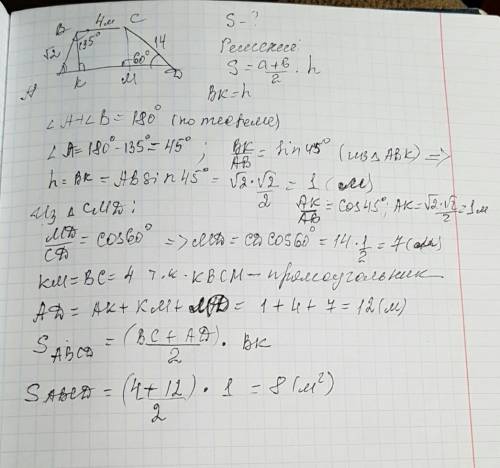 B 4м C
√2 135° 14
60°
A K M D
S - ?
Решение
S = a+b/2 · h
BK = h
∠A+∠B = 180° (по теореме)
∠A = 180° - 135° = 45° ; BK/AB = sin 45° (из △ ABK) =>
h = BK = AB sin 45° = √2·√2/2 = 1 (м)
AK/AB = cos 45°; AK = √2·√2/2 = 1м
Из △ CMD:
MD/CD = cos 60° => MD = CD cos 60° = 14 · 1/2 = 7 (м)
KM = BC = 4 т.к. KBCM – прямоугольник
AD = AK + KM + MD = 1 + 4 + 7 = 12 (м)
S ABCD = (BC + AD)/2 · BK
S ABCD = (4+12)/2 · 1 = 8 (м²)